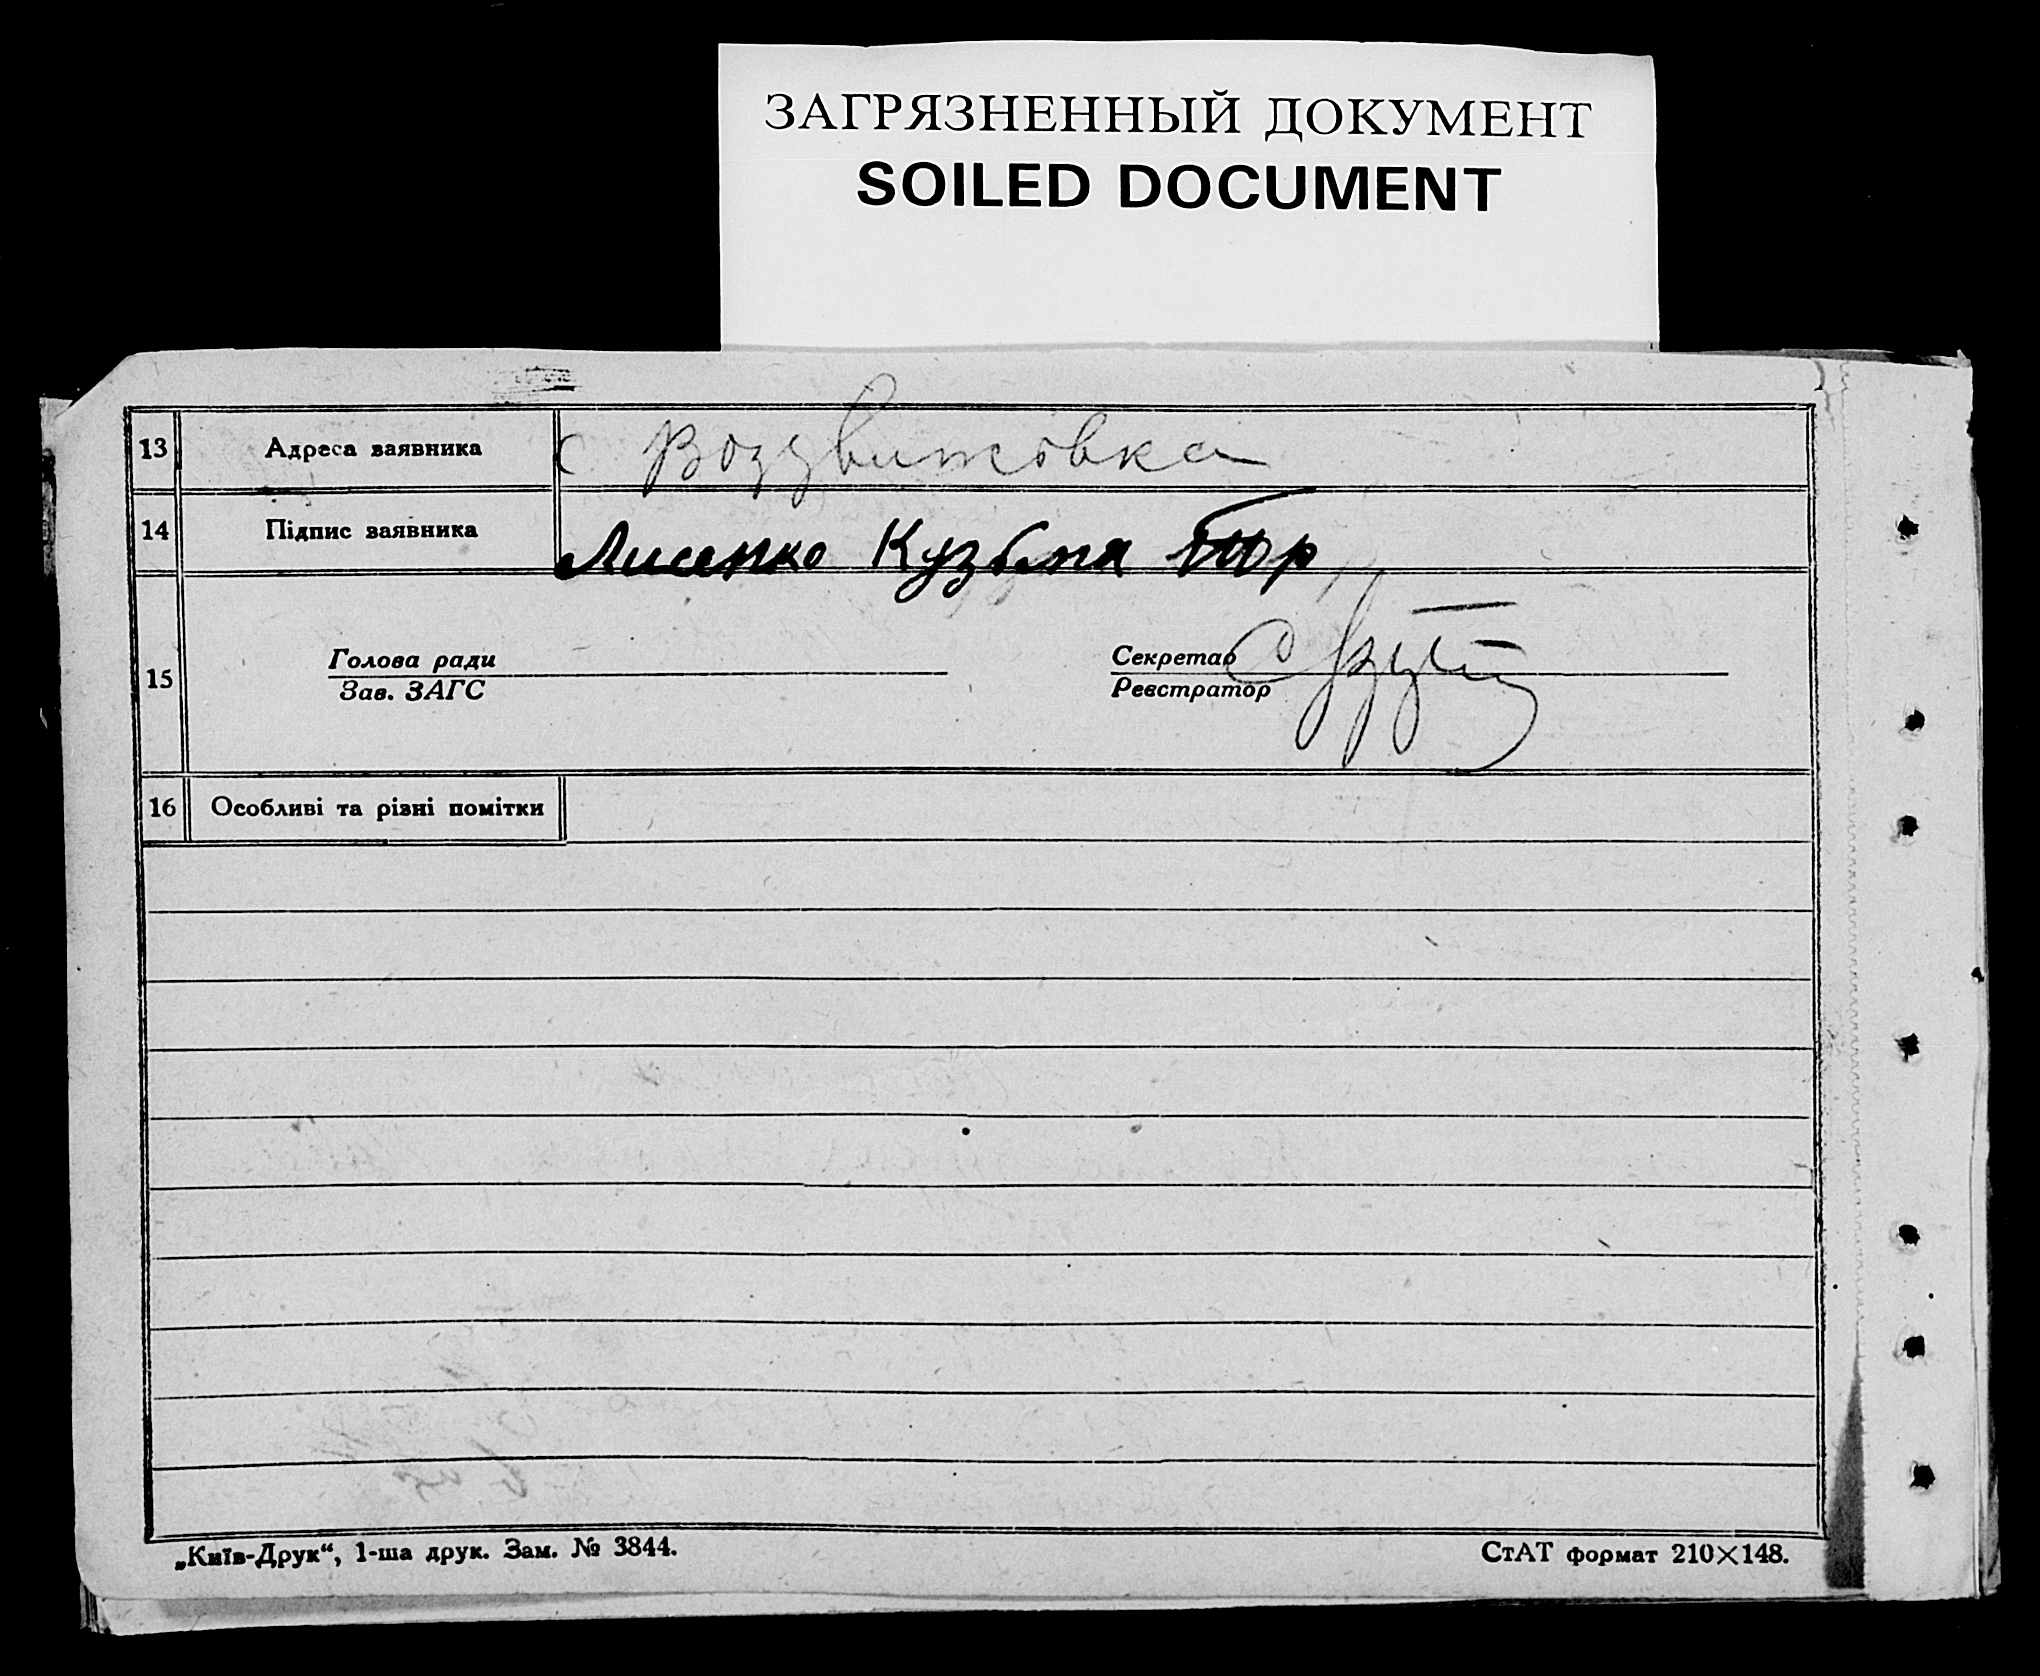 ЗАГРЯЗНЕННЫЙ ДОКУМЕНТ
SOILED DOCUMENT
13 Адреса заявника с Воздвижовка
14 Підпис заявника Лисенко Кузьма
15 Голова ради Секретар
Зав. ЗАГС Реєстратор
16 Особливі та різні помітки
„Київ-Друк“, 1-ша друк. Зам. № 3844. СтАТ формат 210×148.